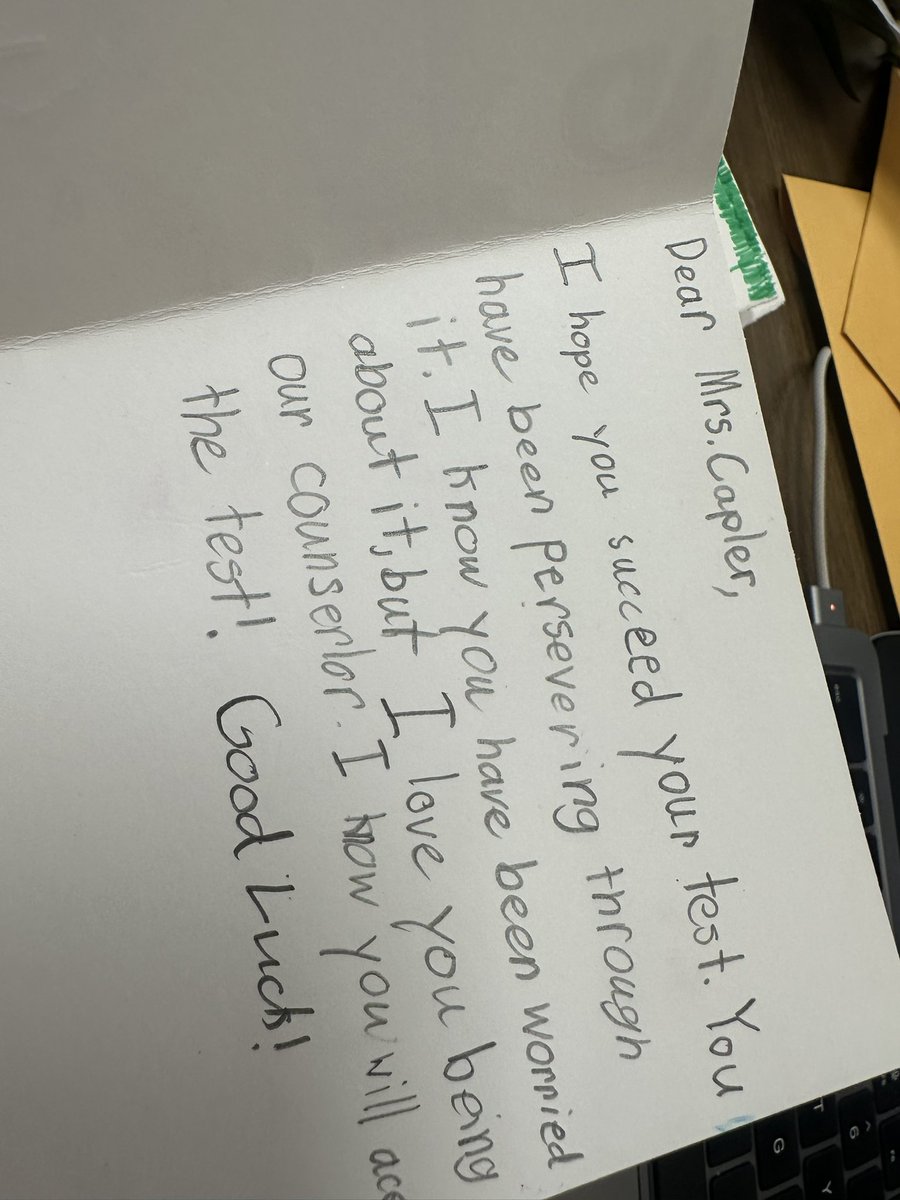 Dear Mrs. Capler,
I hope you succeed your test. You
have been persevering through
it. I know you have been worried
about it, but I love you being
our counserlor. I know you will ace
the test! Good Luck!